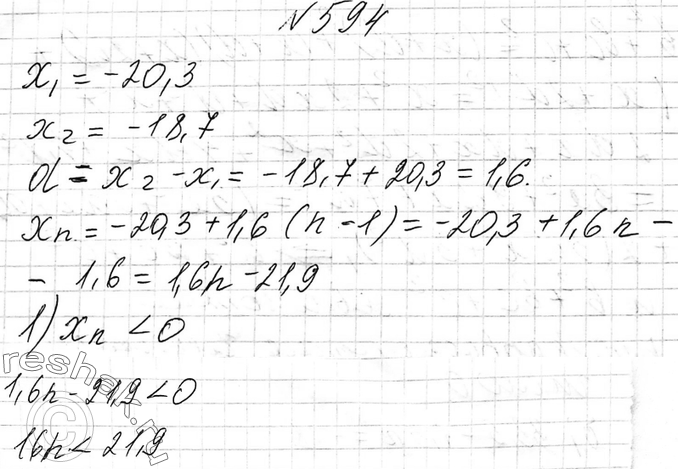 №594
x₁ = -20,3
x₂ = -18,7
d = x₂ - x₁ = -18,7 + 20,3 = 1,6.
xn = -20,3 + 1,6 (n - 1) = -20,3 + 1,6n -
- 1,6 = 1,6n - 21,9
1) xn < 0
1,6n - 21,9 < 0
16n < 21,9
reshak.ru